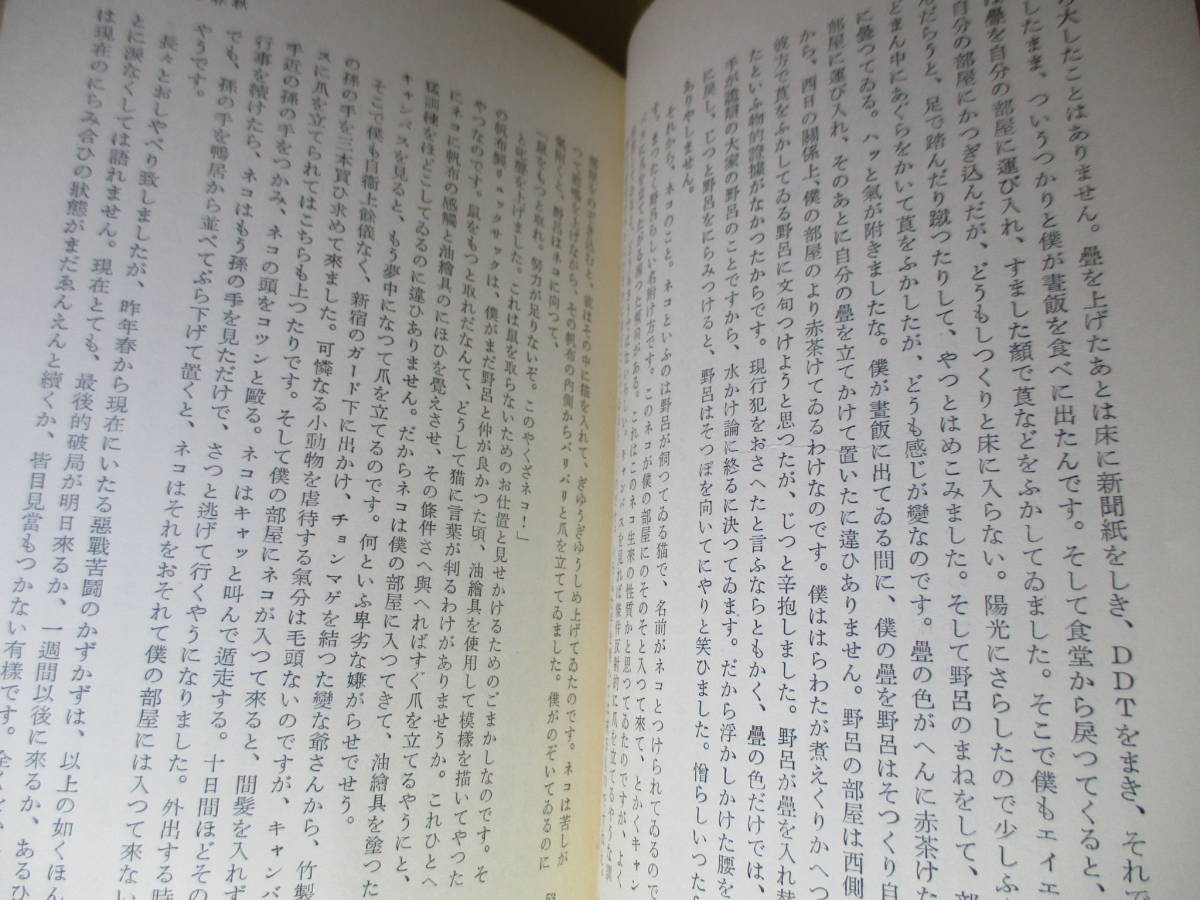 大したことはありません。疊を上げたあとは床に新聞紙をしき、DDTをまき、それで
したまま、ついうつかりと僕が晝飯を食べに出たんです。そして食堂から戾つてくると、
は疊を自分の部屋に運び入れ、すました顔で莨などをふかしてゐました。そこで僕もエイエ
自分の部屋にかつぎ込んだが、どうもしつくりと床に入らない。陽光にさらしたので少しふ
んだらうと、足で踏んだり蹴つたりして、やつとはめこみました。そして野呂のまねをして、部
どまん中にあぐらをかいて莨をふかしたが、どうも感じが變なのです。疊の色がへんに赤茶けた
に疊つてゐる。ハッと氣が附きましたな。僕が晝飯に出てゐる間に、僕の疊を野呂はそつくり自
部屋に運び入れ、そのあとに自分の疊を立てかけて置いたに違ひありません。野呂の部屋は西側
から、西日の關係上、僕の部屋のより赤茶けてゐるわけなのです。僕ははらわたが煮えくりかへつ
彼方で莨をふかしてゐる野呂に文句つけようと思つたが、じつと辛抱しました。野呂が疊を入れ替
たといふ物的證據がなかつたからです。現行犯をおさへたと言ふならともかく、疊の色だけでは、
の大家の野呂のことですから、水かけ論に終るに決つてゐます。だから浮かしかけた腰を
に戾し、じつと野呂をにらみつけると、野呂はそつぽを向いてにやりと笑ひました。憎らしいつたら
ありやしません。
それから、ネコのこと。ネコといふのは野呂が飼つてゐる猫で、名前がネコとつけられてゐるので
す。まつたく野呂らしい名附け方です。このネコが僕の部屋にのそのそと入つて來て、とかくキャン
傾向がある。これはこのネコ生來の性質かと思つてゐたのですが、よく
キャンバスを見れば條件反射的に爪を立てるやうな訓
彼はその中に猫を入れて、ぎゆうぎゆうしめ上げてゐたのです。ネコは苦しが
つて悲鳴を上げながら、その帆布の内側からバリバリと爪を立ててゐました。僕がのぞいてゐるのに
氣附くと、野呂はネコに向つて、
「鼠をもつと取れ。努力が足りないぞ。このやくざネコ！」
と叱聲を上げました。これは鼠を取らないためのお仕置と見せかけるためのごまかしなのです。そ
の帆布製リュックサックは、僕がまだ野呂と仲が良かつた頃、油繪具を使用して模樣を描いてやつた
やつなのです。鼠をもつと取れだなんて、どうして猫に言葉が判るわけがありませうか。これひとへ
にネコに帆布の感觸と油繪具のにほひを覺えさせ、その條件さへ與へればすぐ爪を立てるやうにと、
猛訓練をほどこしてゐるのに違ひありません。だからネコは僕の部屋に入つてきて、油繪具を塗つた
キャンバスを見ると、もう夢中になつて爪を立てるのです。何といふ卑劣な嫌がらせでせう。
そこで僕も自衞上餘儀なく、新宿のガード下に出かけ、チョンマゲを結つた變な爺さんから、竹製
の孫の手を三本買ひ求めて來ました。可憐なる小動物を虐待する氣分は毛頭ないのですが、キャンバ
スに爪を立てられてはこちらも上つたりです。そして僕の部屋にネコが入つて來ると、間髪を入れず
手近の孫の手をつかみ、ネコの頭をコツンと毆る。ネコはキャッと叫んで遁走する。十日間ほどその
行事を續けたら、ネコはもう孫の手を見ただけで、さつと逃げて行くやうになりました。外出する時
でも、孫の手を鴨居から並べてぶら下げて置くと、ネコはそれをおそれて僕の部屋には入つて來ない
やうです。
長々とおしやべり致しましたが、昨年春から現在にいたる惡戰苦鬪のかずかずは、以上の如くほん
とに淚なくしては語れません。現在とても、最後的破局が明日來るか、一週間以後に來るか、あるひ
は現在のにらみ合ひの狀態がまだゑんえんと續くか、皆目見當もつかない有樣です。全